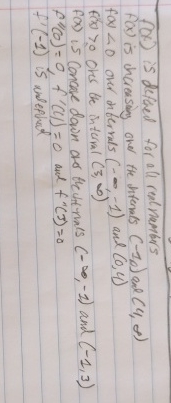 f(x) is defined for all real numbers
f(x) is increasing over the intervals (-1,0) and (4, ∞)
f(x) < 0 over intervals (-∞, -1) and (0,4)
f(x) > 0 over the interval (3, ∞)
f(x) is concave down over the intervals (-∞, -1) and (-1, 3)
f'(0) = 0 f'(4) = 0 and f''(3) = 0
f'(-1) is undefined